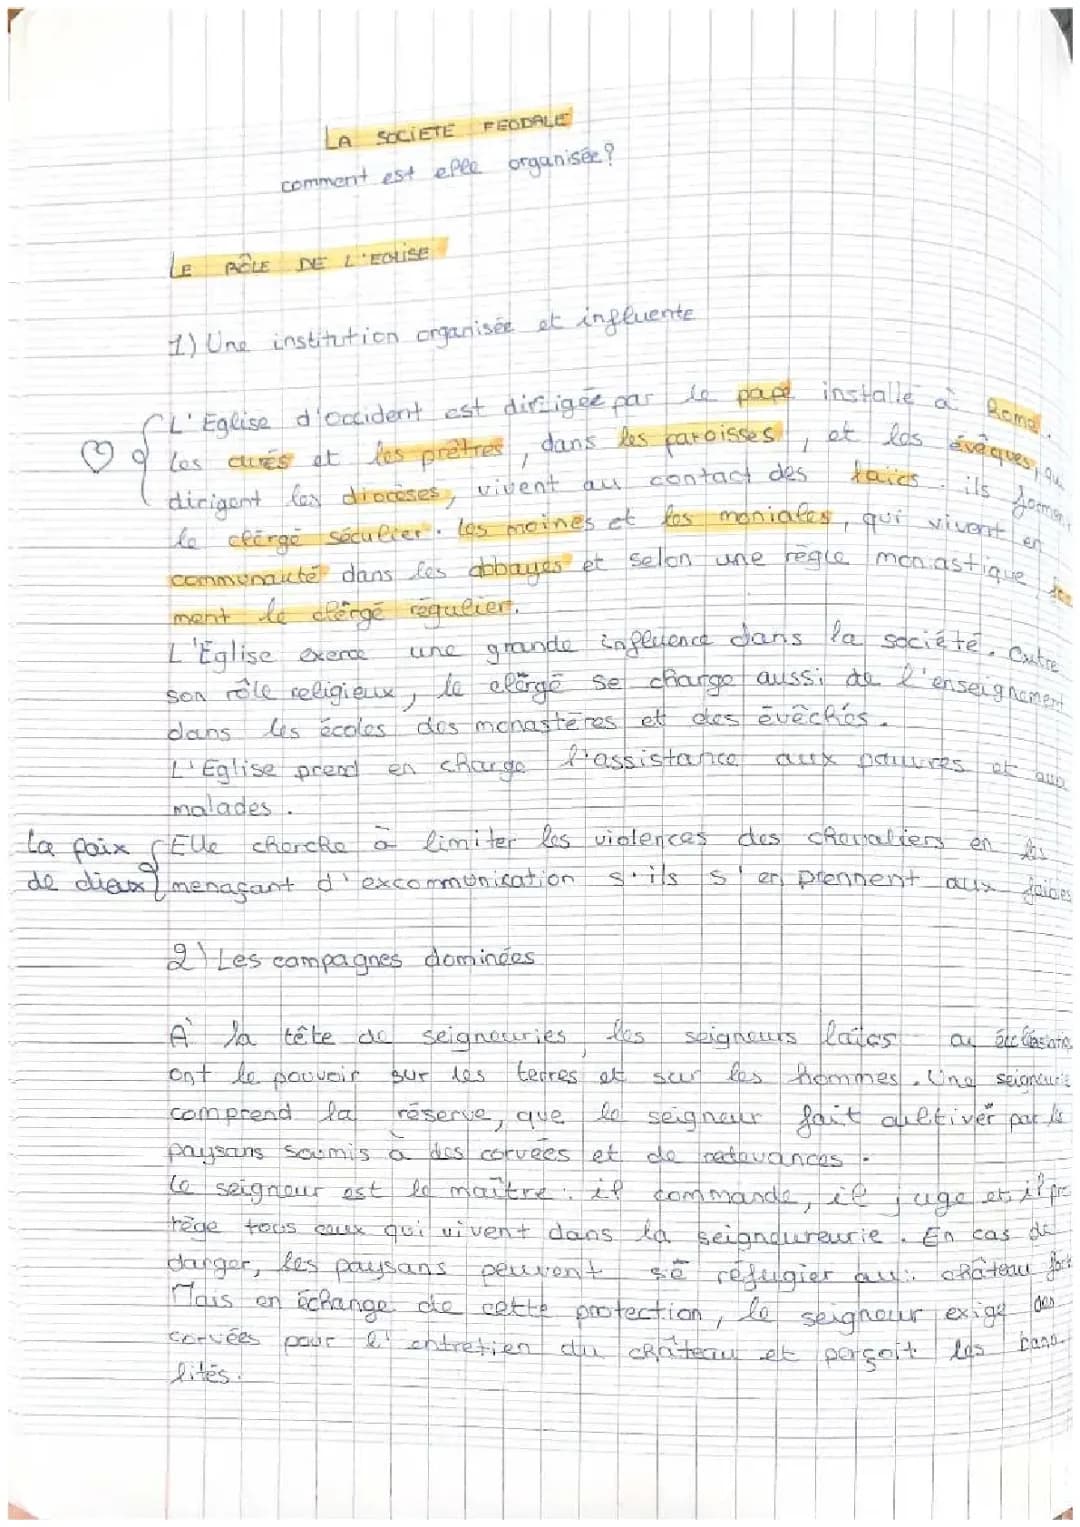 LA SOCIETE FEODALE
comment est elle organisée?
LE RÔLE DE L'EGLISE
1) Une institution organisée et influente
L'Eglise d'Occident est dirigée par le pape installé à Rome.
les curés et les prêtres, dans les paroisses, et les évêques, qui
dirigent les diocèses, vivent au contact des laïcs. ils forment
le clérgé séculier. les moines et les moniales, qui vivent en
communauté dans les abbayes et selon une règle monastique for
ment le clérgé régulier.
L'Eglise exerce une grande influence dans la société. Outre
son rôle religieux, le clérgé se charge aussi de l'enseignement
dans les écoles des monastères et des évêchés.
L'Eglise prend en charge l'assistance aux pauvres et aux
malades.
La paix Elle cherche à limiter les violences des chevaliers en les
de dieux menaçant d'excommunication s'ils s'en prennent aux faibles
2) Les campagnes dominées
A la tête de seigneuries, les seigneurs laïcs ou
ont le pouvoir sur les terres et sur les hommes. Une seigneurie
comprend la réserve, que le seigneur fait cultiver par les
paysans soumis à des corvées et de redevances.
Le seigneur est le maître: il commande, il juge et il pro
tège tous ceux qui vivent dans la seigndureurie. En cas de
danger, les paysans peuvent se réfugier au château fort
Mais en échange de cette protection, le seigneur exige des
corvées pour l'entretien du château et perçoit les bana
lités.